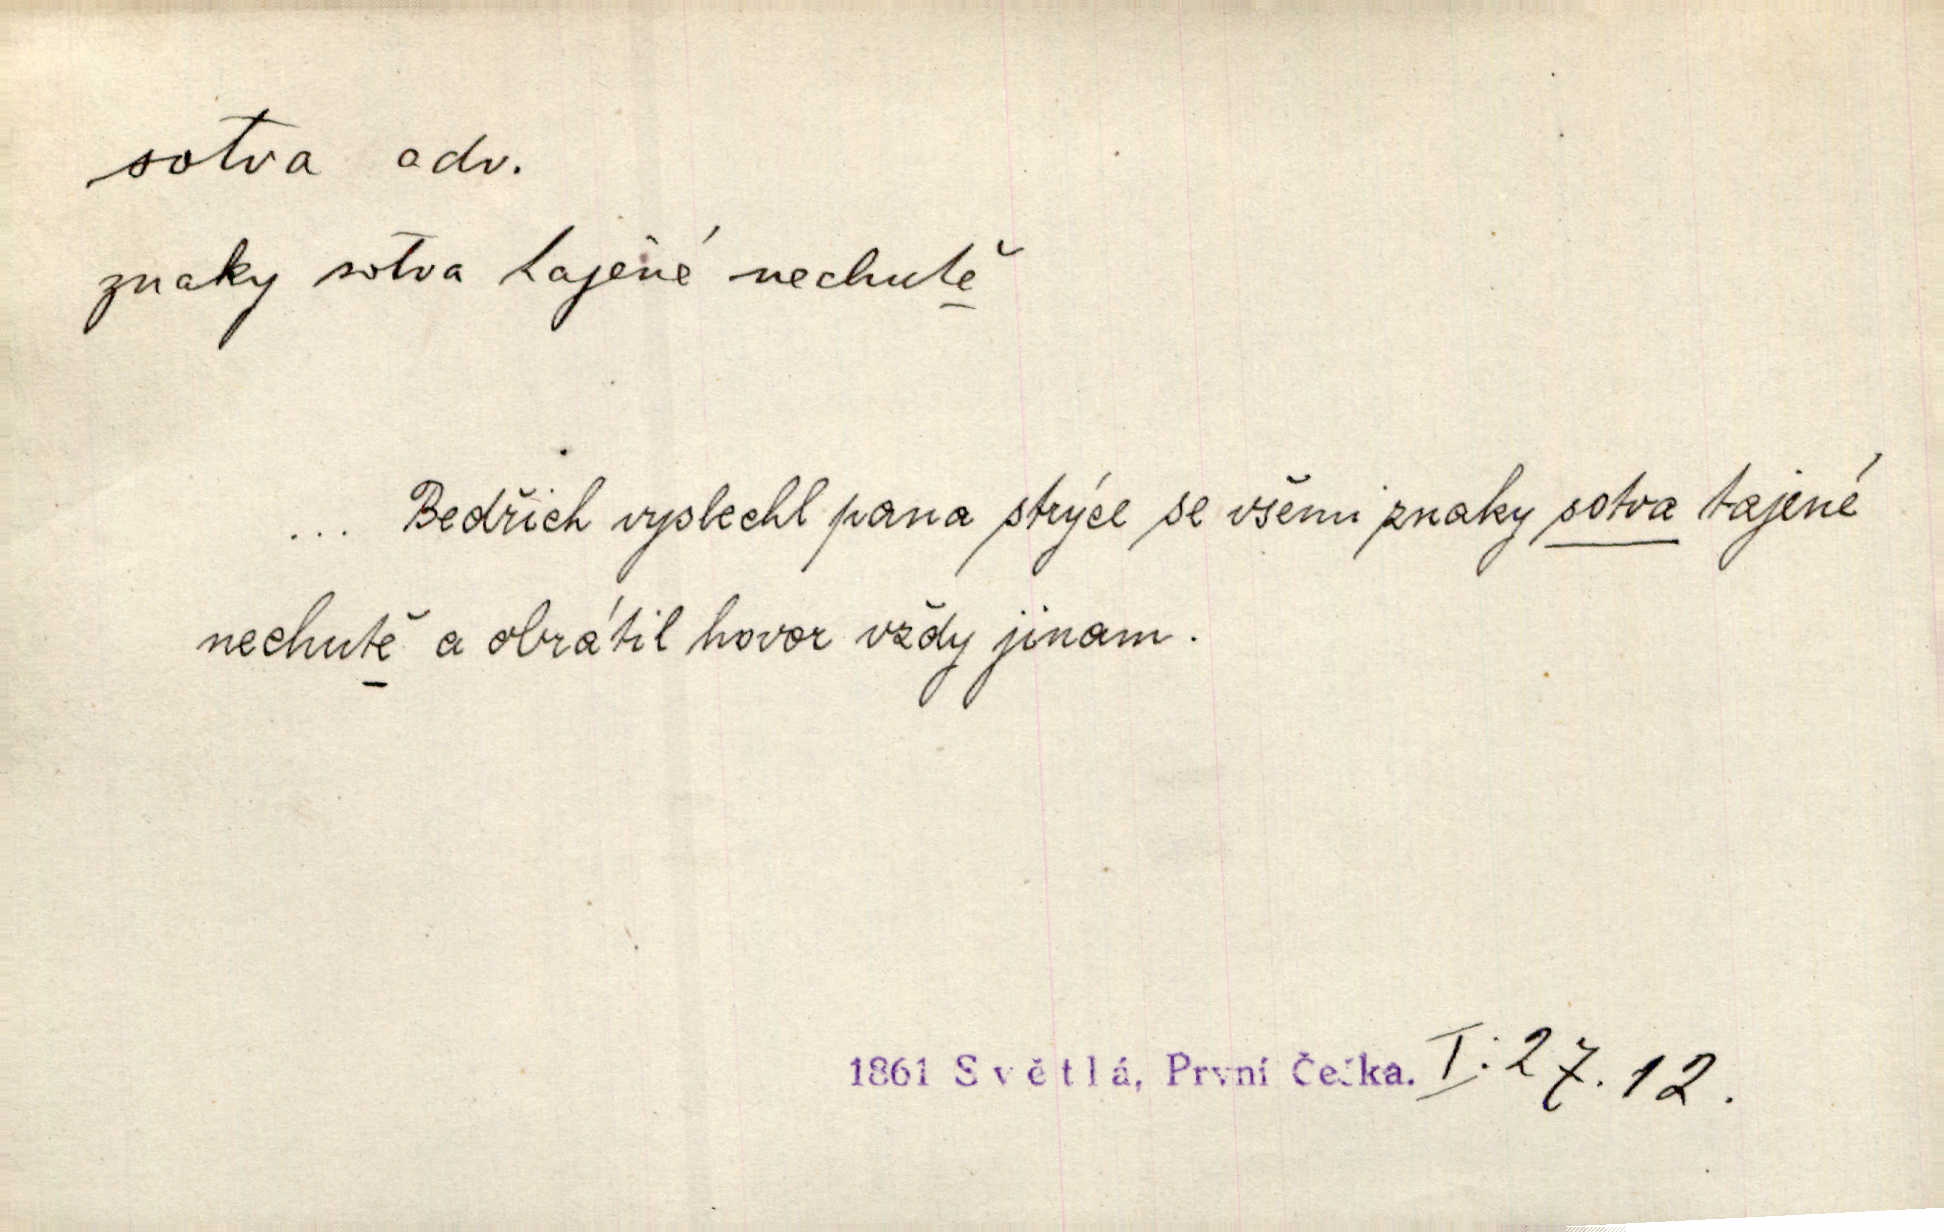 sotva adv.
znaky sotva tajené nechutě
... Bedřich vyslechl pana strýce se všemi znaky sotva tajené
nechutě a obrátil hovor vždy jinam.
1861 Světlá, První Češka. I: 27. 12.